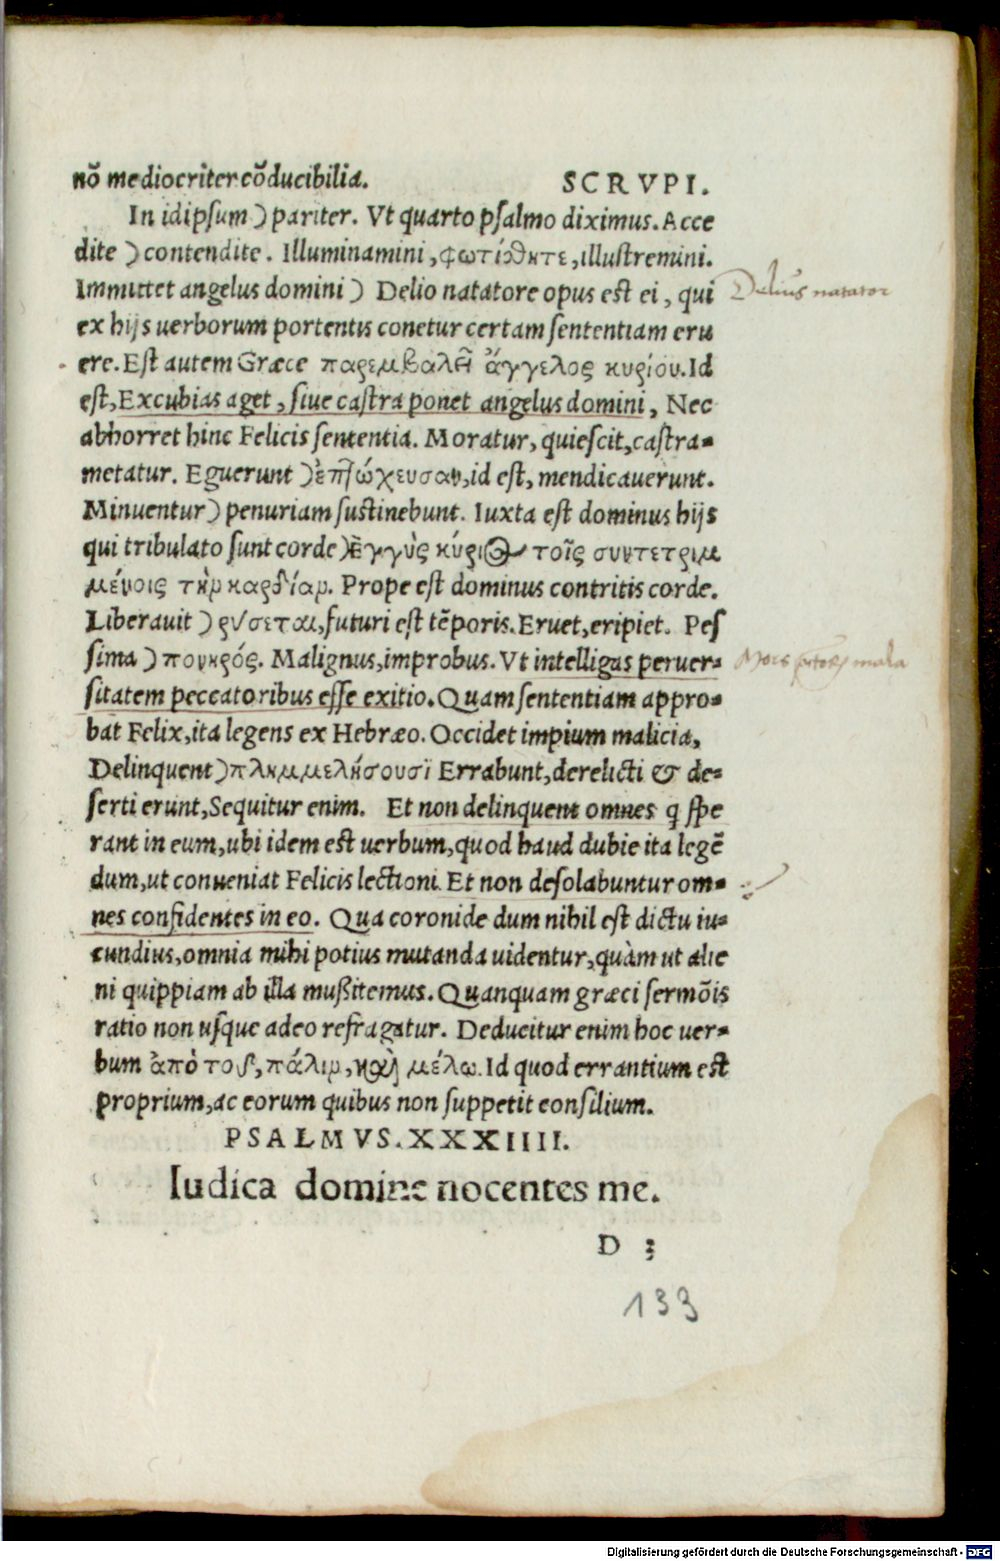 nõ mediocriter cõducibilia. SCRVPI.
In idipsum) pariter. Vt quarto psalmo diximus. Acce
dite) contendite. Illuminamini, φωτίσθητε, illustremini.
Immittet angelus domini) Delio natatore opus est ei, qui
Delius natator
ex hijs uerborum portentis conetur certam sententiam eru
ere. Est autem Græce παρεμβαλεῖ ἄγγελος κυρίου. Id
est, Excubias aget, siue castra ponet angelus domini, Nec
abhorret hinc Felicis sententia. Moratur, quiescit, castra-
metatur. Eguerunt) ἐπτώχευσαν, id est, mendicauerunt.
Minuentur) penuriam sustinebunt. Iuxta est dominus hijs
qui tribulato sunt corde) Εγγὺς κύριος τοῖς συντετριμ
μένοις τὴν καρδίαν. Prope est dominus contritis corde.
Liberauit) ρύσεται, futuri est tẽporis. Eruet, eripiet. Pes
sima) πονηρός. Malignus, improbus. Vt intelligas peruer-
Mors mala
sitatem peccatoribus esse exitio. Quam sententiam appro-
bat Felix, ita legens ex Hebræo. Occidet impium malicia,
Delinquent) πλημμελήσουσι Errabunt, derelicti & de-
serti erunt, Sequitur enim. Et non delinquent omnes q̃ spe
rant in eum, ubi idem est uerbum, quod haud dubie ita legẽ
dum, ut conueniat Felicis lectioni. Et non desolabuntur om-
nes confidentes in eo. Qua coronide dum nihil est dictu iu-
cundius, omnia mihi potius mutanda uidentur, quàm ut alie
ni quippiam ab illa mußitemus. Quanquam græci sermõis
ratio non usque adeo refragatur. Deducitur enim hoc uer-
bum ἀπὸ τοῦ, πάλιν, καὶ μέλω. Id quod errantium est
proprium, ac eorum quibus non suppetit consilium.
PSALMVS. XXXIIII.
Iudica domine nocentes me.
D
133
Digitalisierung gefördert durch die Deutsche Forschungsgemeinschaft - DFG